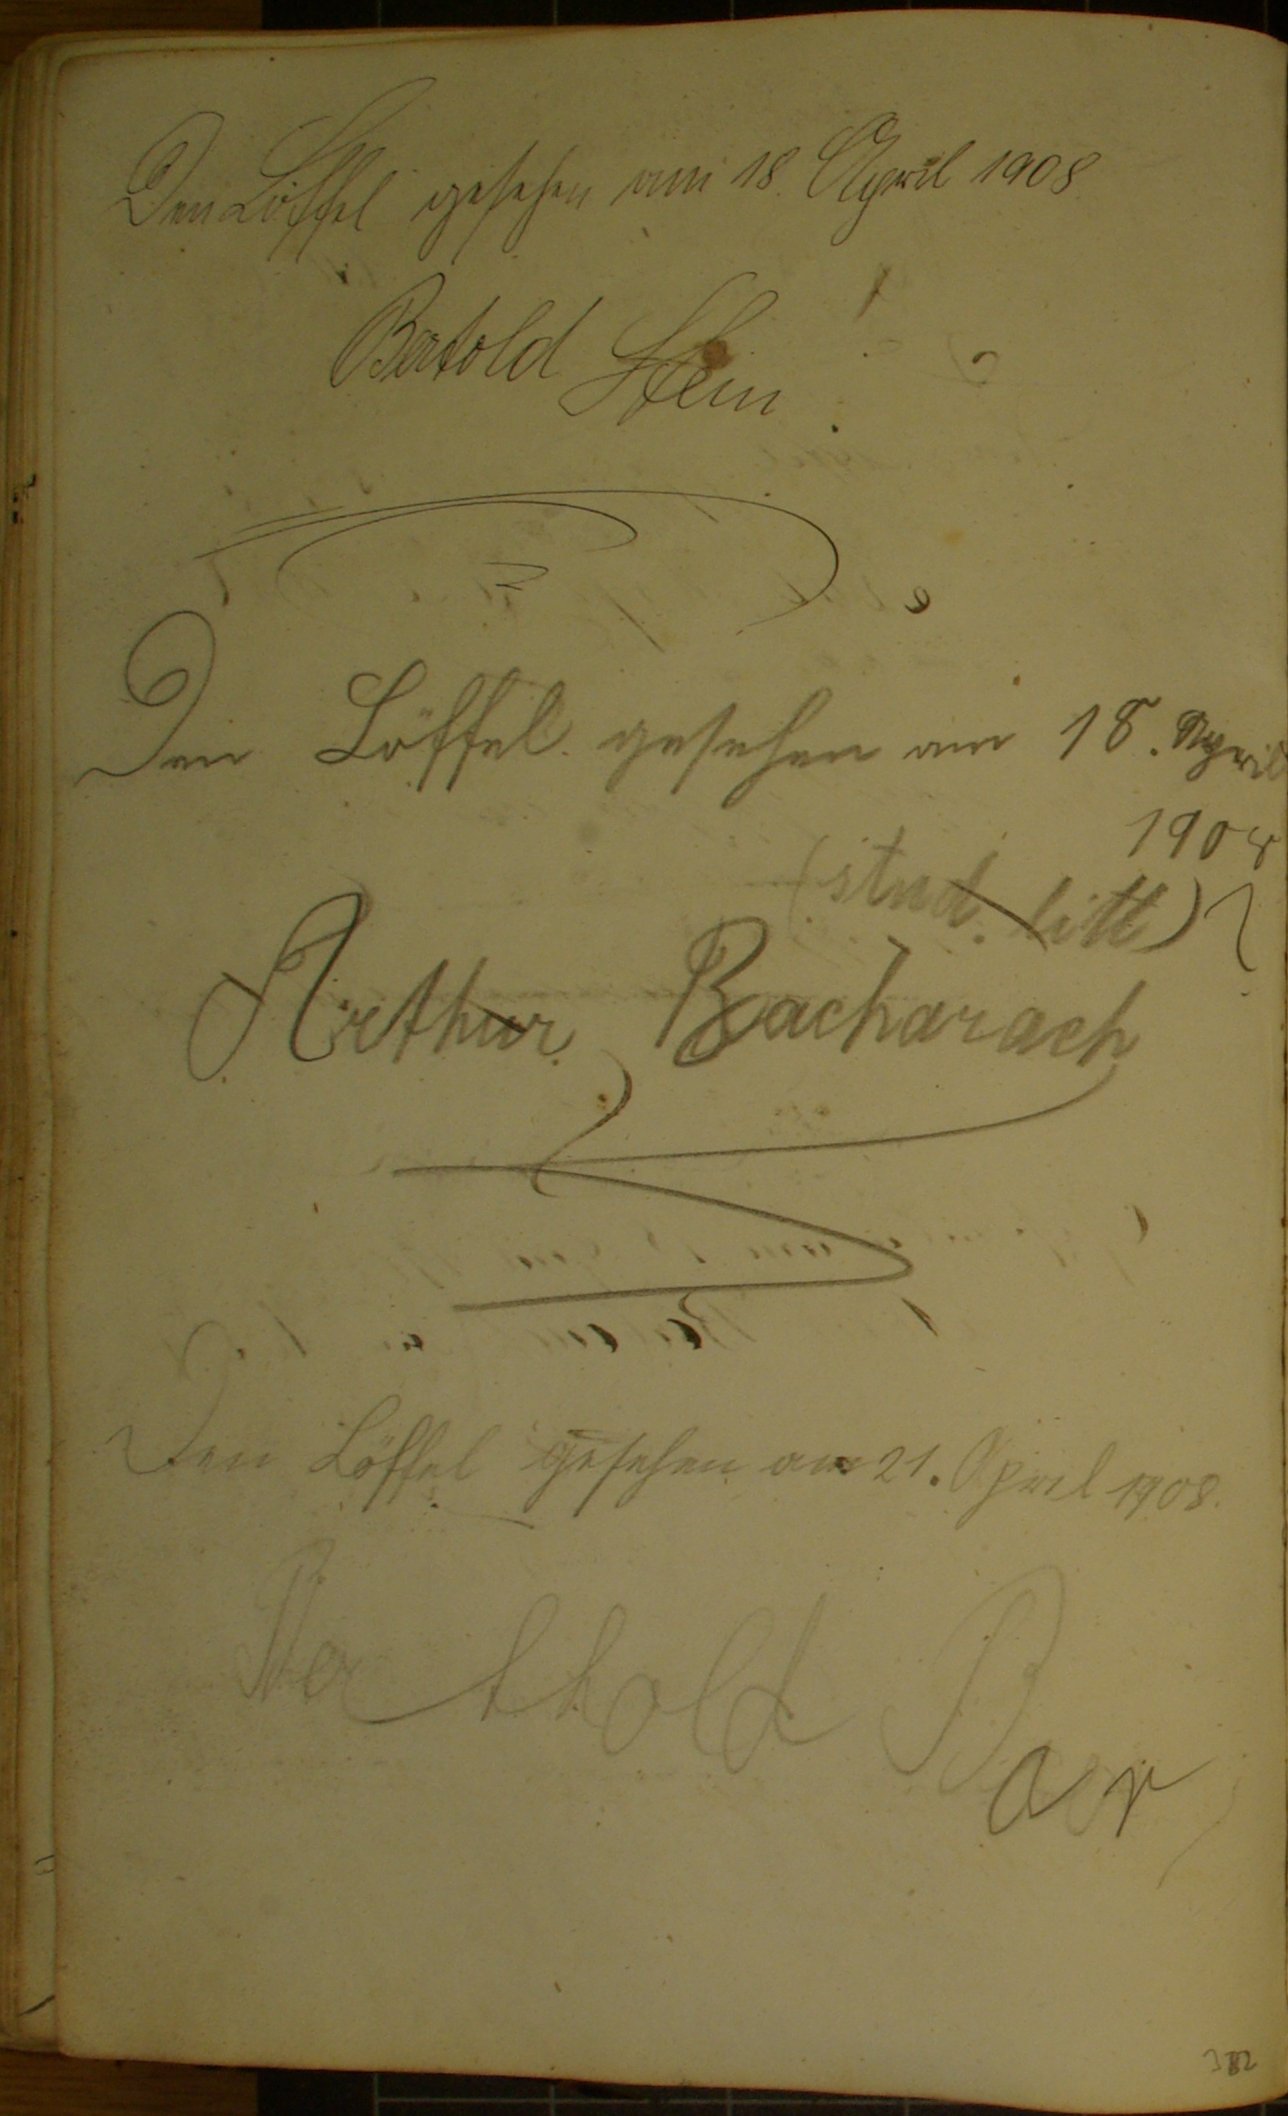 Den Löffel gesehen am 18. April 1908
Bertold Stein
Den Löffel gesehen am 18. April
1908
(stud. litt)
Arthur Bacharach
Den Löffel gesehen am 21. April 1908.
Berthold Baer